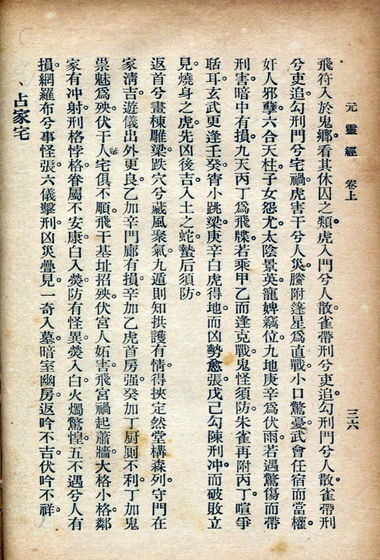 元靈經 卷上 三六
飛符入於鬼鄉看其休囚之類虎入門兮人散雀帶刑兮吏追勾刑門兮人散雀帶刑
兮吏追勾刑門兮宅禍虎害干兮人災螣附蓬星爲直戰小口驚憂武會任宿而當權
奸人邪孽六合天柱子女怨尤太陰景英寵婢竊位九地庚辛爲伏雨若遇驚傷而帶
刑害暗中有損九天丙丁爲飛牒若乘甲乙而逢克戰鬼怪須防朱雀再附丙丁喧爭
聒耳玄武更逢壬癸宵小跳梁庚辛白虎得地而凶勢愈張戊己勾陳刑冲而破敗立
見燒身之虎先凶後吉入土之蛇蟄后須防
返首兮畫棟雕梁跌穴兮藏風聚氣九遁則知拱護有情得挾定然堂構森列守門在
家清吉遊儀出外更良乙加辛門廊有損辛加乙虎首房强癸加丁厨厠不利丁加鬼
祟魅爲殃伏干人宅俱不順飛干基址招殃伏宮人妬害飛宮禍起蕭牆大格小格鄰
家有冲射刑格悖格眷屬不安康白入熒防有怪異熒入白火燭驚惶五不遇兮人有
損網羅布兮事怪張六儀擊刑凶災疊見一奇入墓暗室幽房返吟不吉伏吟不祥
占家宅